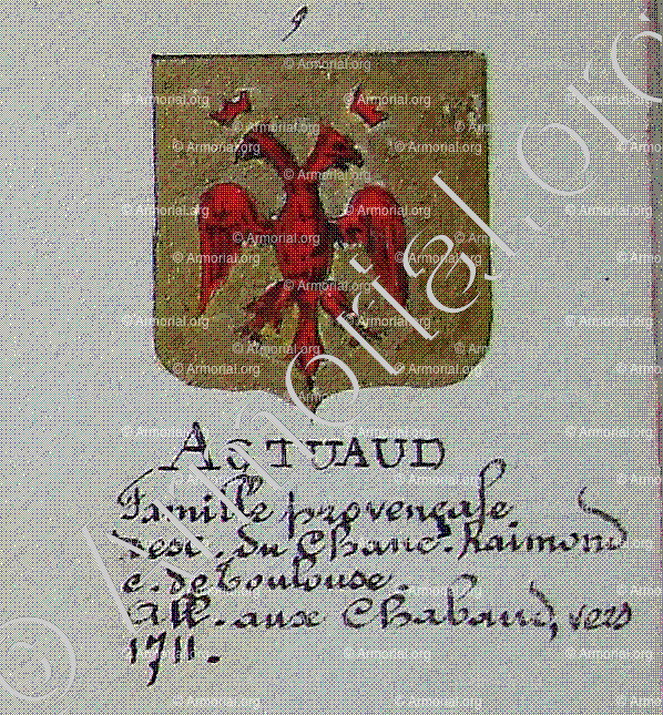 9
ACTUAUD
Famille provençale
desc. du Chanc.r Raimond
c. de Toulouse.
All. aux Chabaud, vers
1711.
© Armorial.org